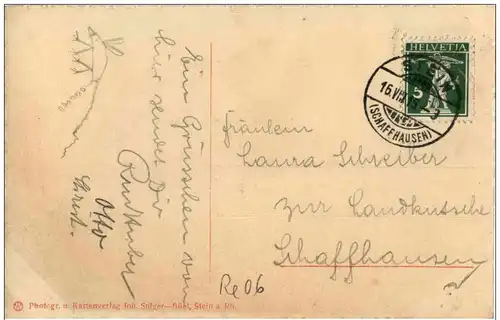 Ein Grüsschen von
hier sendet Dir
Otto
HELVETIA
5
STEIN
16.VII
(SCHAFFHAUSEN)
Fräulein
Laura Schreiber
zur Landkutsche
Schaffhausen
Re 06
Photogr. u. Kartenverlag Joh. Sulger-Büel, Stein a. Rh.